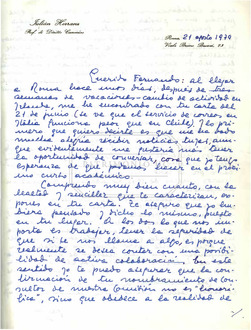 Julián Herranz
Prof. di Diritto Canonico
Roma, 21 agosto 1970
Viale Bruno Buozzi, 73
Querido Fernando: al llegar
a Roma hace unos días, después de tres
semanas de vacaciones-cambio de actividad en
Irlanda, me he encontrado con tu carta del
21 de junio (se ve que el servicio de correos en
Italia funciona peor que en Chile). Lo pri-
mero que quiero decirte es que me ha dado
mucha alegría recibir noticias tuyas, aun-
que evidentemente me gustaría más tener
la oportunidad de conversar, cosa que yo tengo
esperanza de que podamos hacer en el próxi-
mo curso académico.
Comprendo muy bien cuanto, con la
lealtad y sencillez que te caracterizan, ex-
pones en tu carta y te aseguro que yo hu-
biera pensado y dicho lo mismo, puesto
en tu lugar. A los dos lo que nos im-
porta es trabajar, tener la seguridad de
que si se nos llama a algo, es porque
realmente se desea contar con una posibi-
lidad de activa colaboración. En este
sentido yo te puedo asegurar que la con-
firmación de tu nombramiento de Con-
sultor de nuestra Comisión no es "honorí-
fica", sino que obedece a la realidad de